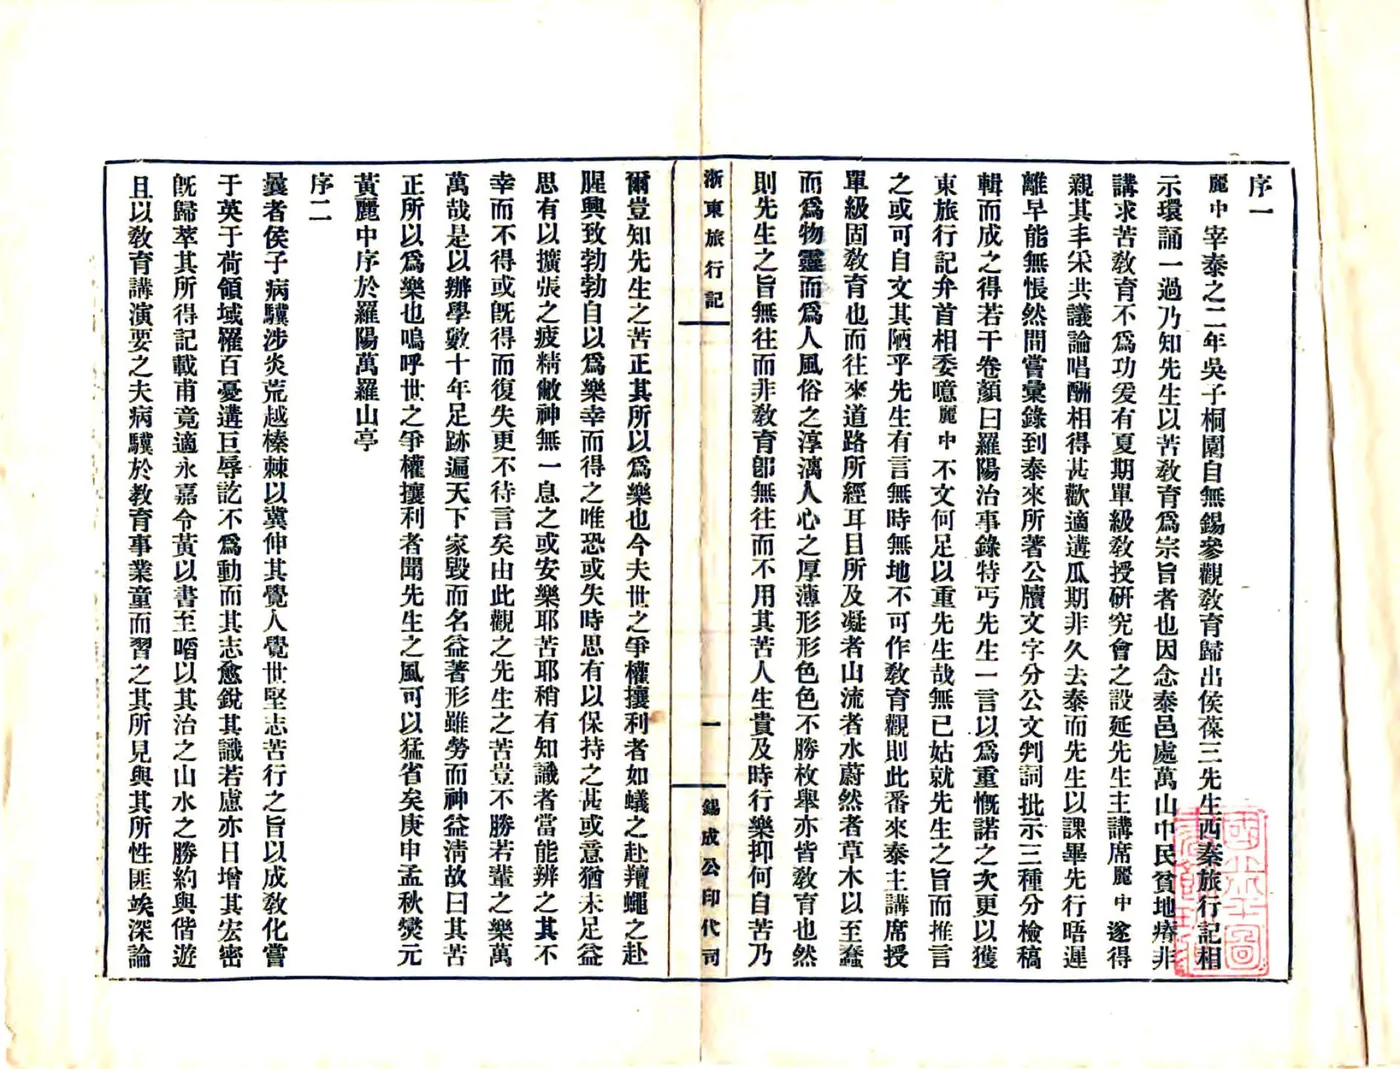 序一
麗中宰泰之二年吳子桐園自無錫參觀教育歸出侯葆三先生西秦旅行記相
示環誦一過乃知先生以苦教育爲宗旨者也因念泰邑處萬山中民貧地瘠非
講求苦教育不爲功爰有夏期單級教授研究會之設延先生主講席麗中遂得
親其丰采共議論唱酬相得甚歡適遘瓜期非久去泰而先生以課畢先行晤遲
離早能無悵然間嘗彙錄到泰來所著公牘文字分公文判詞批示三種分檢稿
輯而成之得若干卷顏曰羅陽治事錄特丐先生一言以爲重慨諾之次更以獲
東旅行記弁首相委噫麗中不文何足以重先生哉無已姑就先生之旨而推言
之或可自文其陋乎先生有言無時無地不可作敎育觀則此番來泰主講席授
單級固敎育也而往來道路所經耳目所及凝者山流者水蔚然者草木以至蠢
而爲物靈而爲人風俗之淳漓人心之厚薄形形色色不勝枚舉亦皆敎育也然
則先生之旨無往而非敎育卽無往而不用其苦人生貴及時行樂抑何自苦乃
浙東旅行記
一
錫成公印代司
爾豈知先生之苦正其所以爲樂也今夫世之爭權攘利者如蟻之赴羶蠅之赴
腥興致勃勃自以爲樂幸而得之唯恐或失時思有以保持之甚或意猶未足益
思有以擴張之疲精敝神無一息之或安樂耶苦耶稍有知識者當能辨之其不
幸而不得或旣得而復失更不待言矣由此觀之先生之苦豈不勝若輩之樂萬
萬哉是以辦學數十年足跡遍天下家毀而名益著形雖勞而神益淸故曰其苦
正所以爲樂也嗚呼世之爭權攘利者聞先生之風可以猛省矣庚申孟秋爕元
黃麗中序於羅陽萬羅山亭
序二
曩者侯子病驥涉炎荒越榛棘以冀伸其覺人覺世堅志苦行之旨以成敎化嘗
于英于荷領域罹百憂遘巨辱訖不爲動而其志愈銳其識若慮亦日增其宏密
旣歸萃其所得記載甫竟適永嘉令黃以書至㗖以其治之山水之勝約與偕遊
且以敎育講演要之夫病驥於敎育事業童而習之其所見與其所性匪竢深論